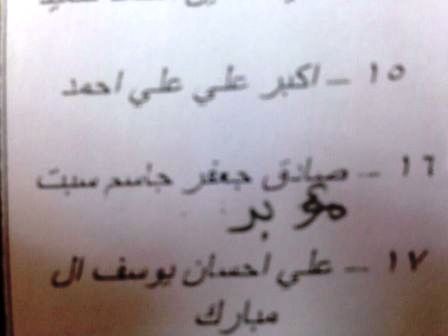 ١٥ - اكبر علي علي احمد
١٦ - صادق جعفر جاسم سبت
١٧ - علي احسان يوسف ال
مبارك